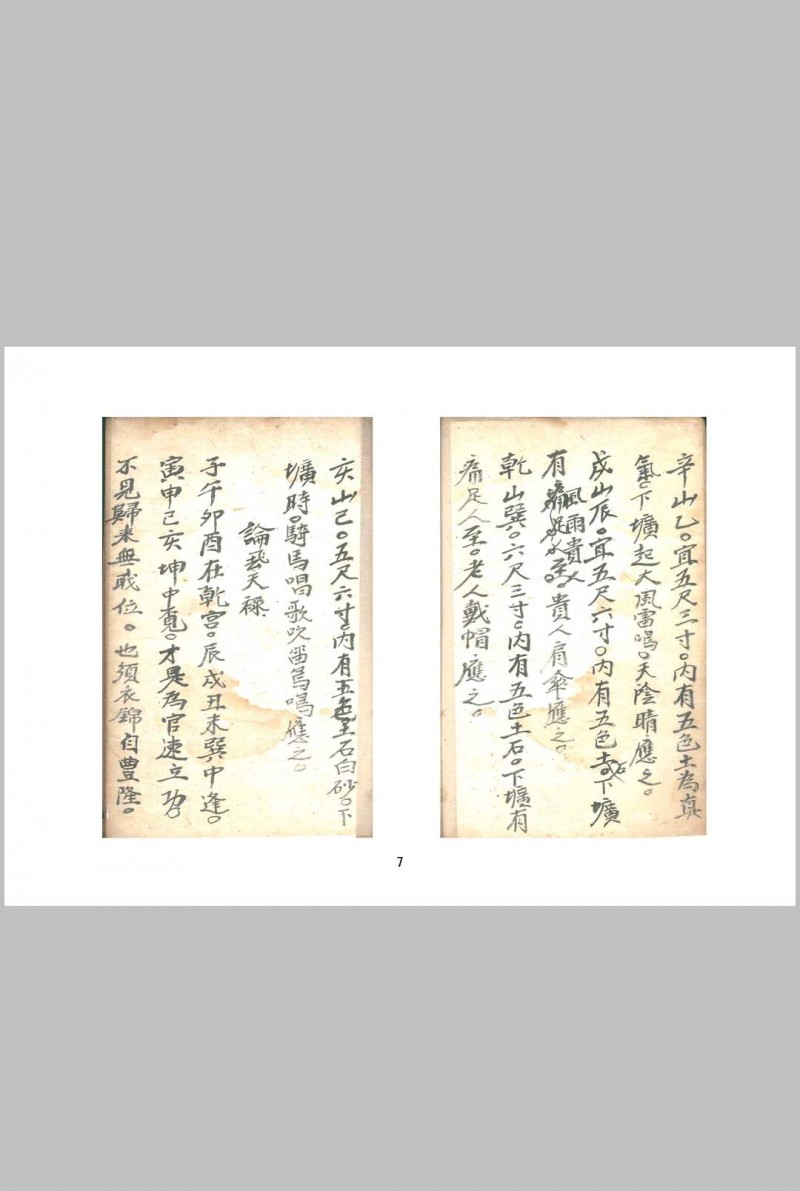 辛山乙。宜五尺三寸。內有五色土為真
氣。下壙起大風雷鳴。天陰晴應之。
戌山辰。宜五尺六寸。內有五色土石。下壙
有風雨貴人至。貴人肩傘應之。
乾山巽。六尺三寸。內有五色土石。下壙。有
痛足人至。老人戴帽應之。
亥山己。五尺六寸。內有五色土石白砂。下
壙時。騎馬唱歌吹笛鳥鳴應之。
論 天祿
子午卯酉在乾宮。辰戌丑未巽中逢。
寅申己亥坤中覓。才是為官速立功
不見歸來無職位。也須衣錦自豊隆。
7